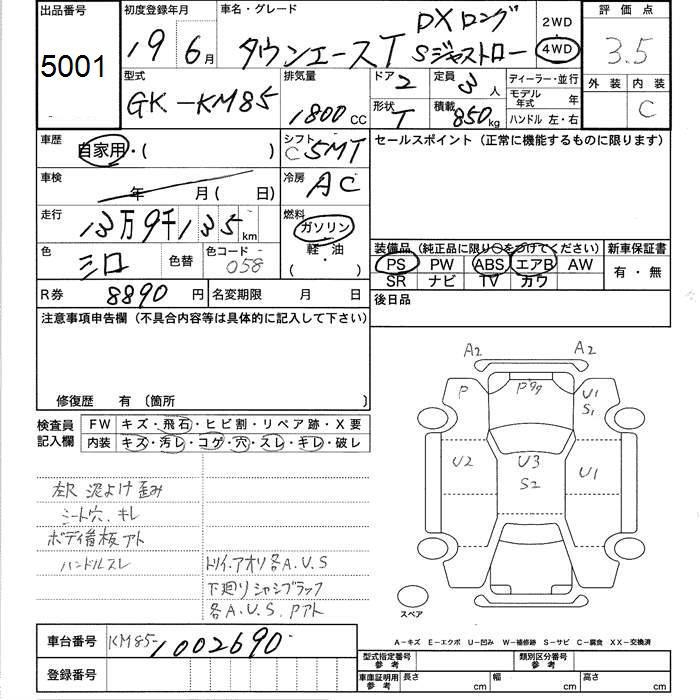 出品番号 5001
初度登録年月 19 6月
車名・グレード タウンエースT DXロング Sジャストロー
2WD 4WD
評価点 3.5
型式 GK-KM85
排気量 1800 CC
ドア 2
定員 3人
ディーラー・並行
モデル年式 年
形状 T
積載 850kg
ハンドル 左・右
外装 内装 C
車歴 自家用・( )
シフト C5MT
セールスポイント(正常に機能するものに限ります)
車検 年 月( 日)
冷房 AC
走行 13万9千135km
燃料 ガソリン 軽・油 ( )
色 シロ
色替
色コード 058
装備品(純正品に限り〇をつけてください)
新車保証書
PS PW ABS エアB AW
SR ナビ TV カワ
有・無
R券 8890円
名変期限 月 日
後日品
注意事項申告欄(不具合内容等は具体的に記入して下さい)
修復歴 有〔箇所 〕
検査員記入欄
FW キズ・飛石・ヒビ割・リペア跡・X要
内装 キズ・汚レ・コゲ・穴・スレ・キレ・破レ
A2 A2
P Pクク U1 S1
U2 U3 S2 U1
左R 泥よけ歪み
シート穴、キレ
ボディ看板アト
ハンドルスレ
トリイ、アオリ各A.U.S
下廻りシャシブラック
各A.U.S.Pアト
スペア
車台番号 KM85-1002690
登録番号
A-キズ E-エクボ U-凹み W-補修跡 S-サビ C-腐食 XX-交換済
型式指定番号 参考
類別区分番号 参考
車庫証明用 参考 長さ cm 幅 cm 高さ cm